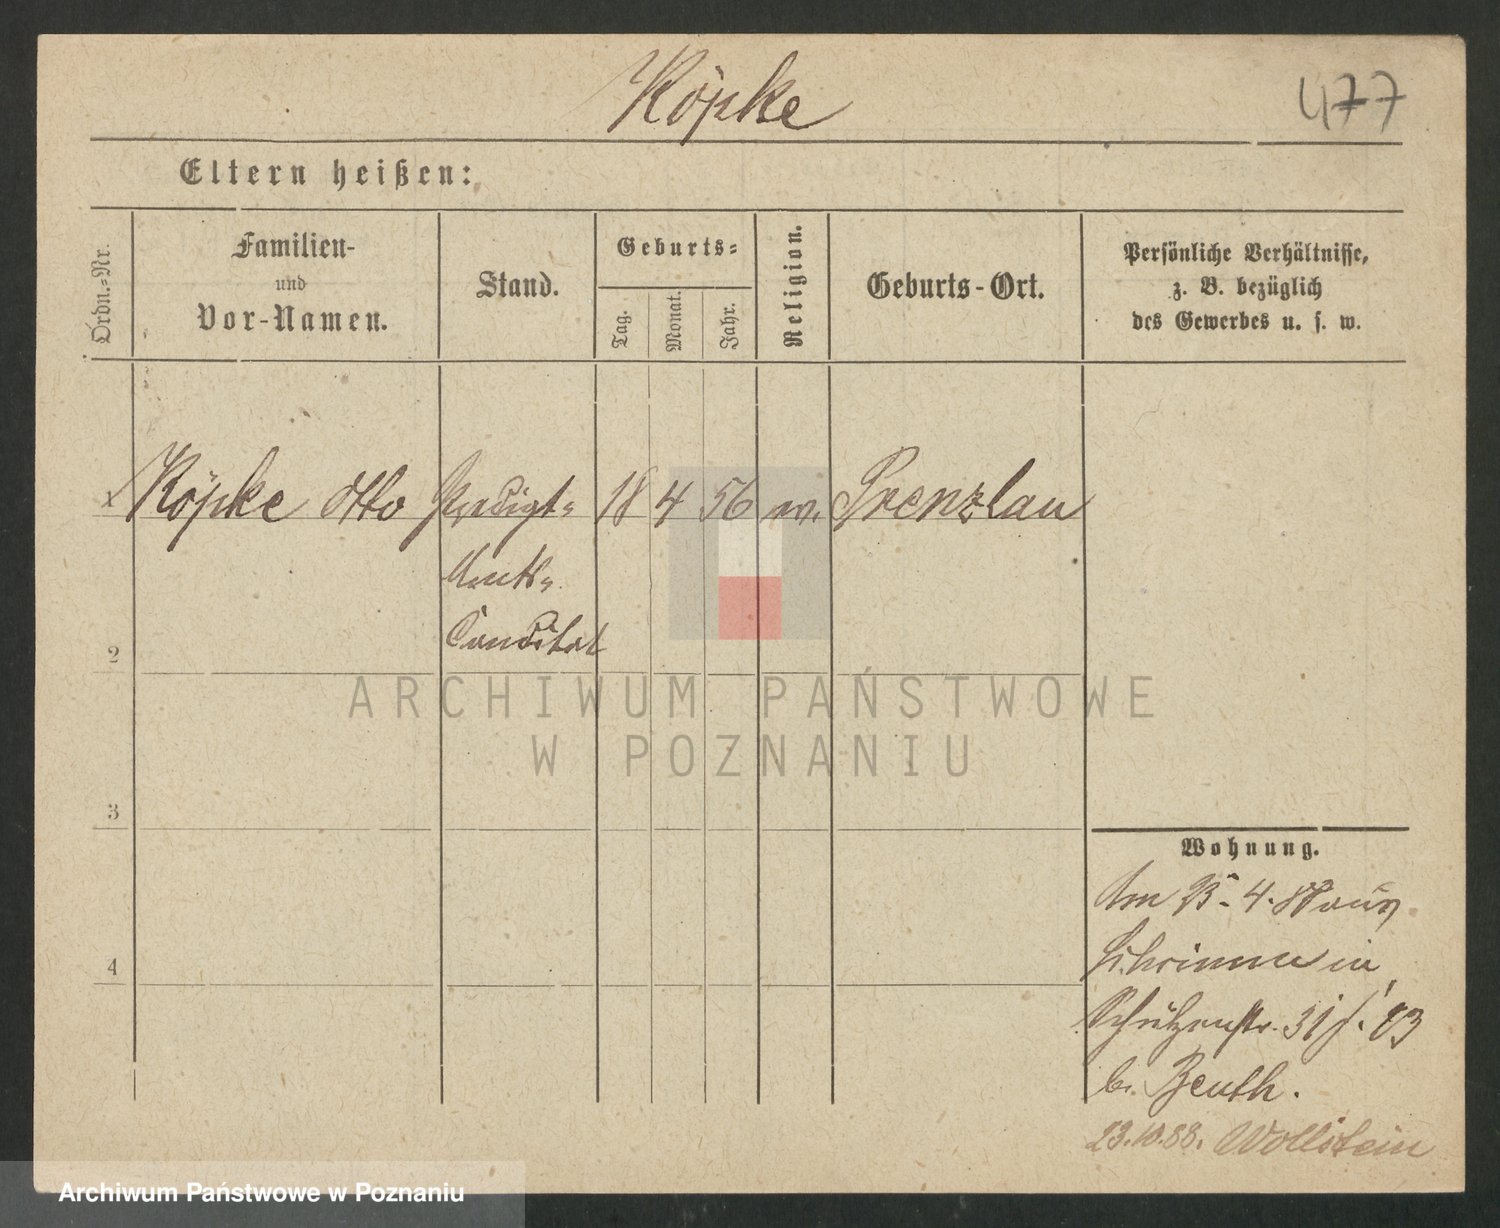 Köpke
477
Eltern heißen:
Ordn.-Nr.
Familien-
und
Vor-Namen.
Stand.
Geburts-
Tag.
Monat.
Jahr.
Religion.
Geburts-Ort.
Persönliche Verhältnisse,
z. B. bezüglich
des Gewerbes u. s. w.
1 Köpke Otto Predigt- 18 4 56 ev. Prenzlau
Amts-
Candidat
2
ARCHIWUM PAŃSTWOWE
W POZNANIU
3
4
Wohnung.
Am 4. aus
in
Schützenstr. 31
b. Beuth.
23.10.88. Wollstein
Archiwum Państwowe w Poznaniu